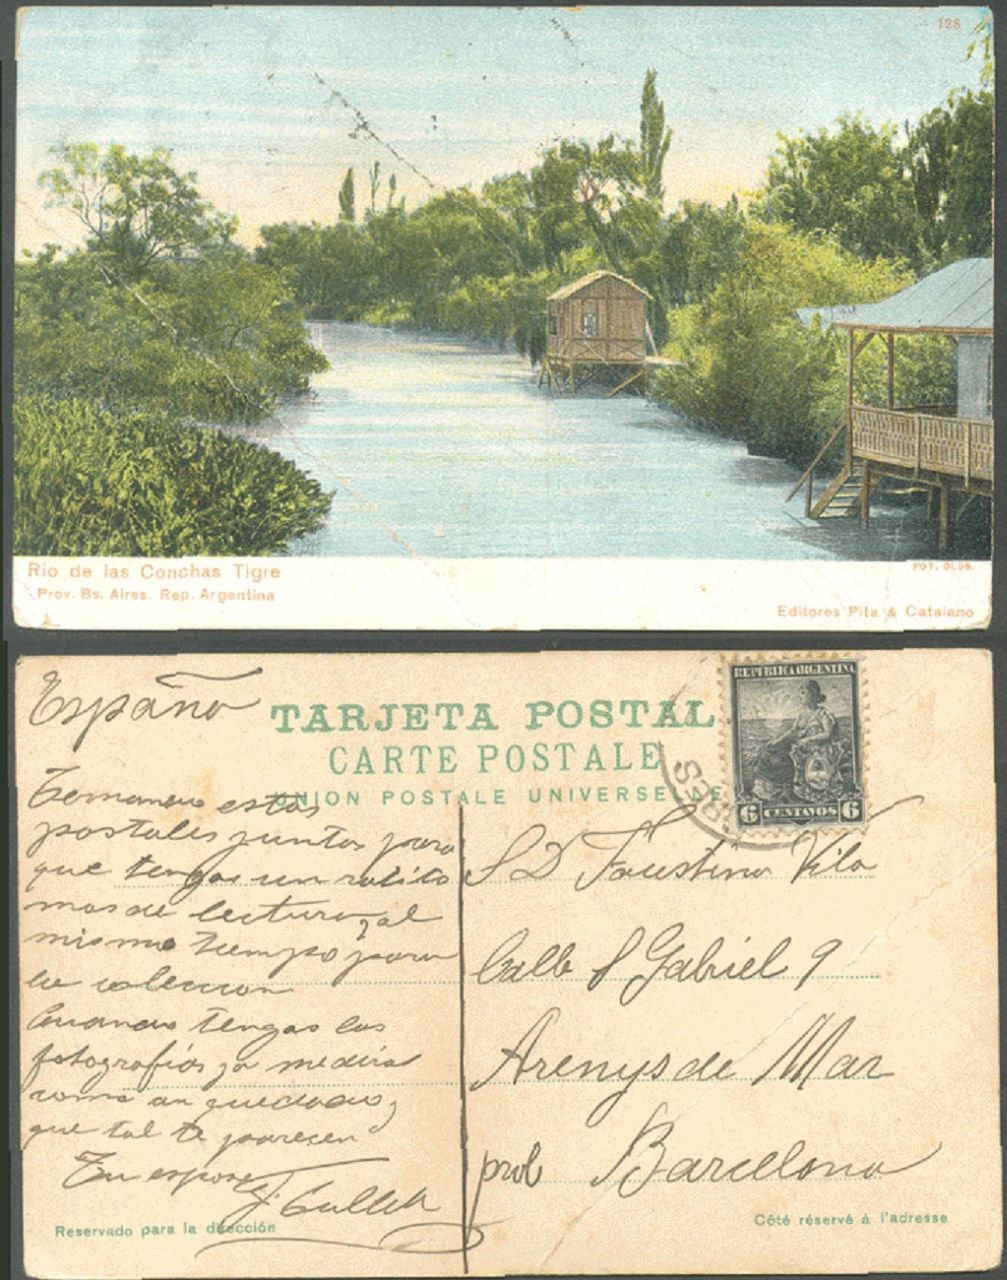 128
Rio de las Conchas Tigre
Prov. Bs. Aires. Rep. Argentina
FOT. OLDS.
Editores Pita & Catalano
España
TARJETA POSTAL
CARTE POSTALE
UNION POSTALE UNIVERSELLE
REPUBLICA ARGENTINA
6 CENTAVOS 6
estas
postales juntas para
que tengas un ratito
mas de lectura, al
mismo tiempo para
la coleccion
Cuando tengas las
fotografias ya me diras
como an quedado,
que tal te parecen
Tu esposo
S D Faustino Vila
Calle S Gabriel 9
Arenys de Mar
prob Barcelona
Reservado para la dirección
Côté réservé á l'adresse